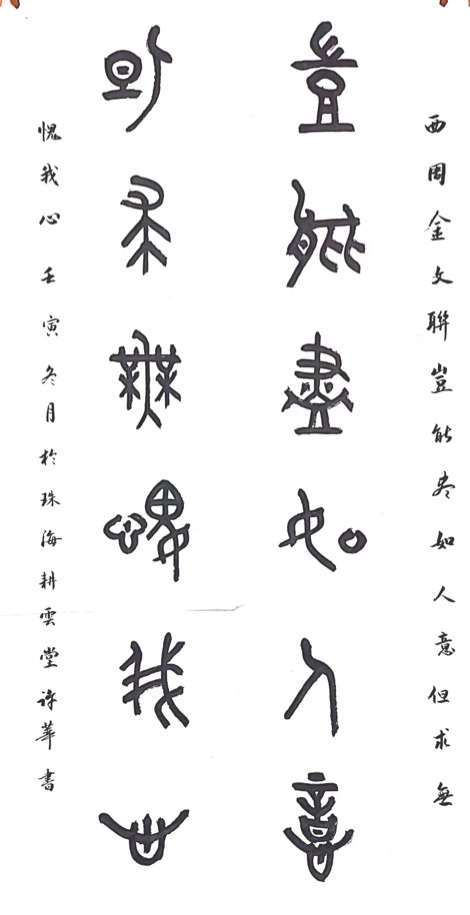 西周金文聯豈能尽如人意但求無
豈能盡如人意
但求無愧我心
愧我心壬寅冬月於珠海耕雲堂許華書